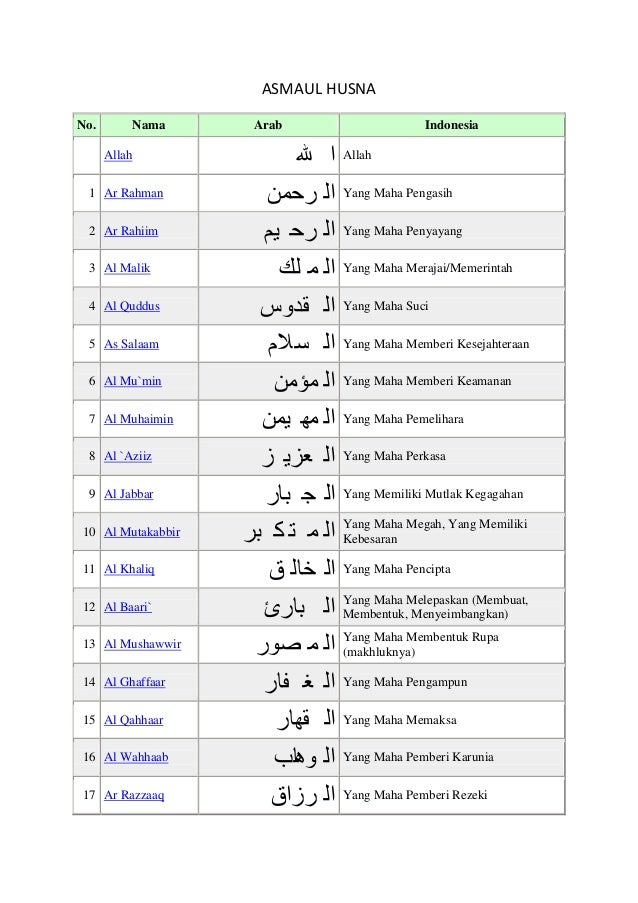 ASMAUL HUSNA
No. Nama Arab Indonesia
Allah ا لله Allah
1 Ar Rahman الـ رحمن Yang Maha Pengasih
2 Ar Rahiim الـ رحـ يم Yang Maha Penyayang
3 Al Malik الـ مـ لك Yang Maha Merajai/Memerintah
4 Al Quddus الـ قدوس Yang Maha Suci
5 As Salaam الـ سلام Yang Maha Memberi Kesejahteraan
6 Al Mu`min الـ مؤمن Yang Maha Memberi Keamanan
7 Al Muhaimin الـ مهـ يمن Yang Maha Pemelihara
8 Al `Aziiz الـ عزيـ ز Yang Maha Perkasa
9 Al Jabbar الـ جـ بار Yang Memiliki Mutlak Kegagahan
10 Al Mutakabbir الـ مـ تـ كـ بر Yang Maha Megah, Yang Memiliki
Kebesaran
11 Al Khaliq الـ خالـ ق Yang Maha Pencipta
12 Al Baari` الـ بارئ Yang Maha Melepaskan (Membuat,
Membentuk, Menyeimbangkan)
13 Al Mushawwir الـ مـ صور Yang Maha Membentuk Rupa
(makhluknya)
14 Al Ghaffaar الـ غـ فار Yang Maha Pengampun
15 Al Qahhaar الـ قهار Yang Maha Memaksa
16 Al Wahhaab الـ وهاب Yang Maha Pemberi Karunia
17 Ar Razzaaq الـ رزاق Yang Maha Pemberi Rezeki